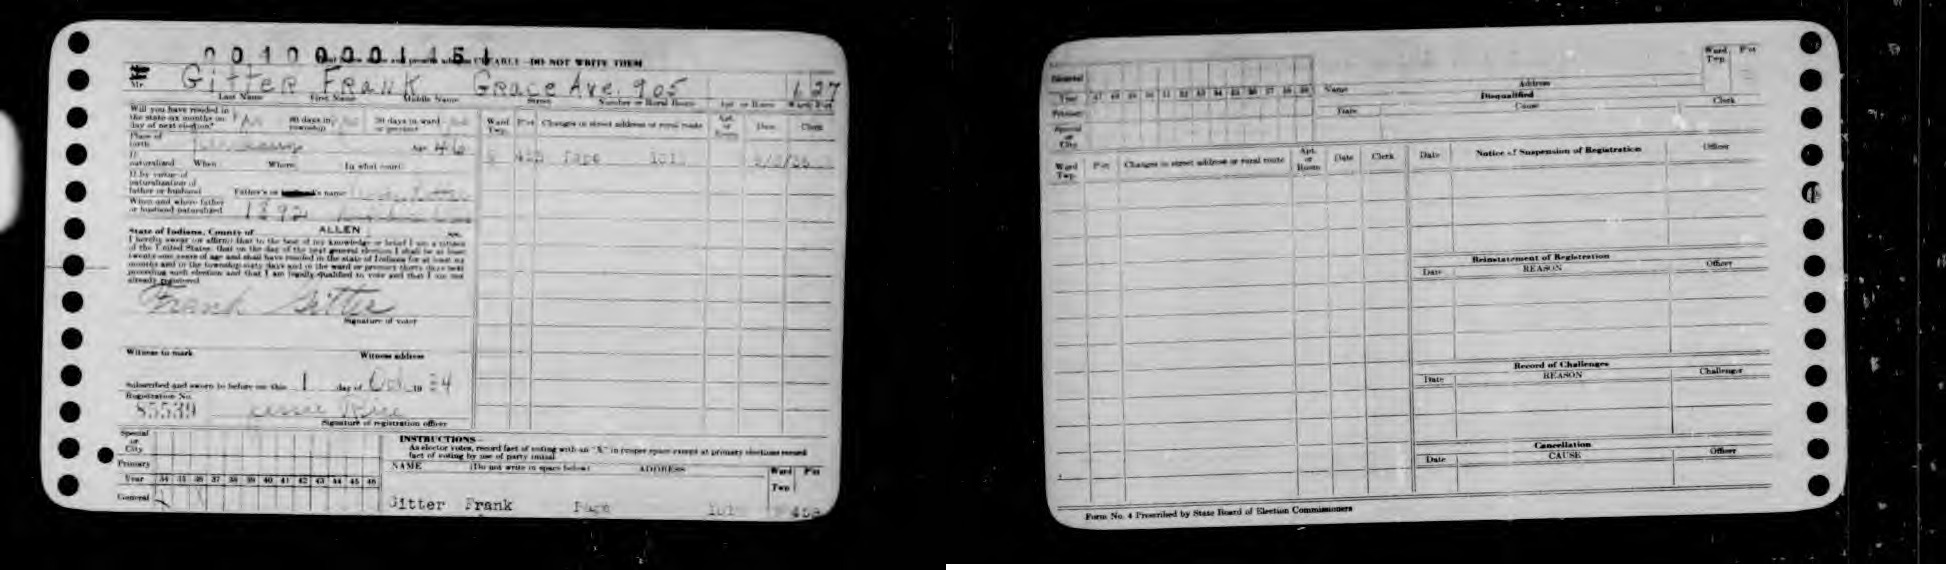 001000011451
CLEARLY—DO NOT WRITE THEM
Mr. Gitter Frank Grace Ave. 905 1 27
Last Name First Name Middle Name Street Number or Rural Route Apt. or Room Ward Pct
Will you have resided in the state six months on day of next election? 60 days in township 30 days in ward or precinct
Place of birth Age 46
If naturalized When Where In what court
If by virtue of naturalization of father or husband Father's or husband's name
When and where father or husband naturalized 1892
State of Indiana, County of ALLEN ss.
I hereby swear (or affirm) that to the best of my knowledge or belief I am a citizen
of the United States, that on the day of the next general election I shall be at least
twenty-one years of age and shall have resided in the state of Indiana for at least six
months and in the township sixty days and in the ward or precinct thirty days next
preceding such election and that I am legally qualified to vote and that I am not
already registered
Frank Gitter
Signature of voter
Witness to mark Witness address
Subscribed and sworn to before me this 1 day of Oct 19 34
Registration No.
85539
Signature of registration officer
Ward Twp. Pct Changes in street address or rural route Apt. or Room Date Clerk
Special or City
Primary
Year 34 35 36 37 38 39 40 41 42 43 44 45 46
General
INSTRUCTIONS—
As elector votes, record fact of voting with an "X" in proper space except at primary elections record
fact of voting by use of party initial
NAME (Do not write in space below) ADDRESS Ward Twp Pct
Gitter Frank
Ward Twp. Pct
Name Address
General
Year 47 48 49 50 51 52 53 54 55 56 57 58 59
Primary
Special or City
Disqualified
Date Cause Clerk
Ward Twp. Pct Changes in street address or rural route Apt. or Room Date Clerk
Date Notice of Suspension of Registration Officer
Reinstatement of Registration
Date REASON Officer
Record of Challenges
Date REASON Challenger
Cancellation
Date CAUSE Officer
Form No. 4 Prescribed by State Board of Election Commissioners